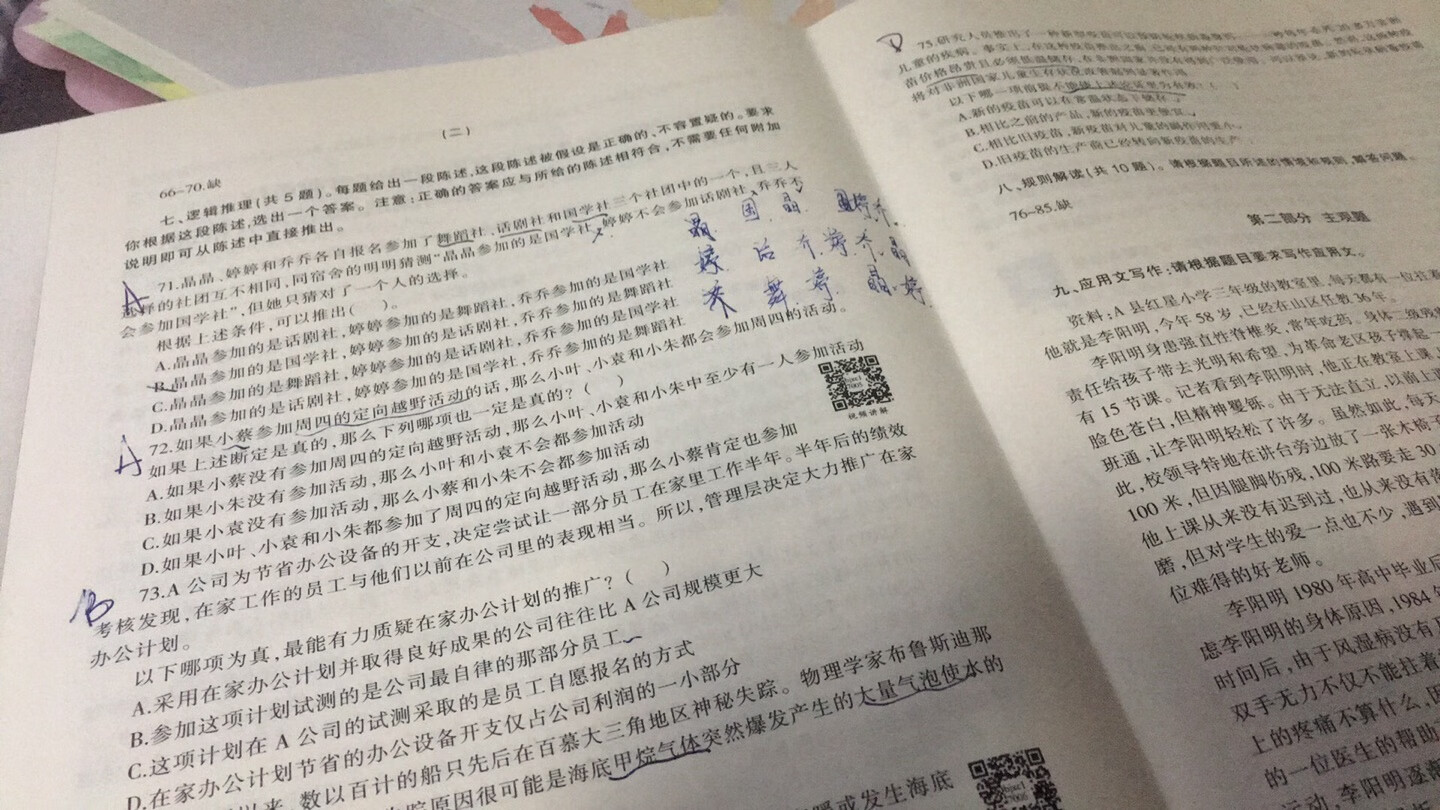 (二)
66-70.缺
七、逻辑推理(共5题)。每题给出一段陈述,这段陈述被假设是正确的,不容置疑的。要求
你根据这段陈述,选出一个答案。注意:正确的答案应与所给的陈述相符合,不需要任何附加
说明即可从陈述中直接推出。
A
71.晶晶、婷婷和乔乔各自报名参加了舞蹈社、话剧社和国学社三个社团中的一个,且三人
选择的社团互不相同,同宿舍的明明猜测“晶晶参加的是国学社,婷婷不会参加话剧社,乔乔不
会参加国学社”,但她只猜对了一个人的选择。
根据上述条件,可以推出( )。
A.晶晶参加的是话剧社,婷婷参加的是舞蹈社,乔乔参加的是国学社
B.晶晶参加的是国学社,婷婷参加的是话剧社,乔乔参加的是舞蹈社
C.晶晶参加的是舞蹈社,婷婷参加的是话剧社,乔乔参加的是国学社
D.晶晶参加的是话剧社,婷婷参加的是国学社,乔乔参加的是舞蹈社
晶 国 晶
婷 话 乔 婷 乔 晶
乔 舞 婷 晶 婷
A
72.如果小蔡参加周四的定向越野活动的话,那么小叶、小袁和小朱都会参加周四的活动。
如果上述断定是真的,那么下列哪项也一定是真的?( )
A.如果小蔡没有参加周四的定向越野活动,那么小叶、小袁和小朱中至少有一人参加活动
B.如果小朱没有参加活动,那么小叶和小袁不会都参加活动
C.如果小袁没有参加活动,那么小蔡和小朱不会都参加活动
D.如果小叶、小袁和小朱都参加了周四的定向越野活动,那么小蔡肯定也参加
视频讲解
B
73.A公司为节省办公设备的开支,决定尝试让一部分员工在家里工作半年。半年后的绩效
考核发现,在家工作的员工与他们以前在公司里的表现相当。所以,管理层决定大力推广在家
办公计划。
以下哪项为真,最能有力质疑在家办公计划的推广?( )
A.采用在家办公计划并取得良好成果的公司往往比A公司规模更大
B.参加这项计划试测的是公司最自律的那部分员工
C.这项计划在A公司的试测采取的是员工自愿报名的方式
D.在家办公计划节省的办公设备开支仅占公司利润的一小部分
以来,数以百计的船只先后在百慕大三角地区神秘失踪。物理学家布鲁斯迪那
踪原因很可能是海底甲烷气体突然爆发产生的大量气泡使水的
暖或发生海底
D
75.研究人员推出了一种新型疫苗可以
儿童的疾病。事实上,在这种疫苗推出之前,
苗价格昂贵且必须低温储存,在非洲国家
将对非洲国家儿童生存状况改善起到显著作用。
以下哪一项前提不能使上述论证更为有效?( )
A.新的疫苗可以在常温状态下储存
B.相比之前的产品,新的疫苗更便宜
C.相比旧疫苗,新疫苗对儿童的副作用要小
D.旧疫苗的生产商已经转向新疫苗的生产
八、规则解读(共10题)。请根据题目所述的情境和规则,解答问题。
76-85.缺
第二部分 主观题
九、应用文写作:请根据题目要求写作应用文。
资料:A县红星小学三年级的教室里,每天都有一位拄着
他就是李阳明,今年58岁,已经在山区任教36年。
李阳明身患强直性脊椎炎,常年吃药。身体二级残
责任给孩子带去光明和希望,为革命老区孩子撑起一
有15节课。记者看到李阳明时,他正在教室上课,
脸色苍白,但精神矍铄。由于无法直立,以前上课
班通,让李阳明轻松了许多。虽然如此,每天
此,校领导特地在讲台旁边放了一张木椅子
100米,但因腿脚伤残,100米路要走30
他上课从来没有迟到过,也从来没有落
磨,但对学生的爱一点也不少,遇到
位难得的好老师。
李阳明1980年高中毕业后
虑李阳明的身体原因,1984年
时间后,由于风湿病没有及
双手无力不仅不能拄着
上的疼痛不算什么,因
的一位医生的帮助
动,李阳明逐渐